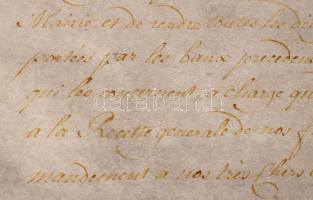 Mairie, et de rendre toutes les
portées par les baux precedens
qui les concernent, a charge qu
a la Recette generale de nos f
mandement a nos tres Chers